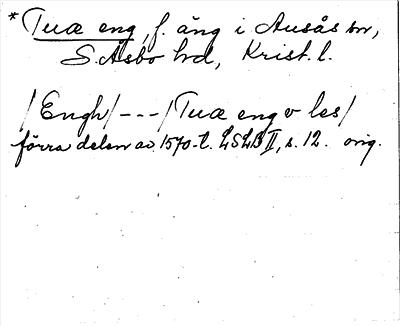 *Tuæ eng, f. äng i Ausås sn,
S. Åsbo hd, Krist. l.
/Engh/---/Tuæ eng v les/
förra delen av 1570-t. LSLB II, s. 12. orig.